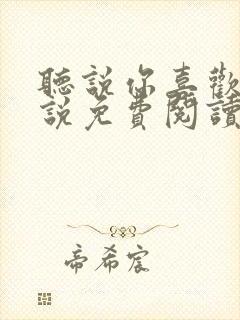 聽說你喜歡
說免費閱讀
帝希宸